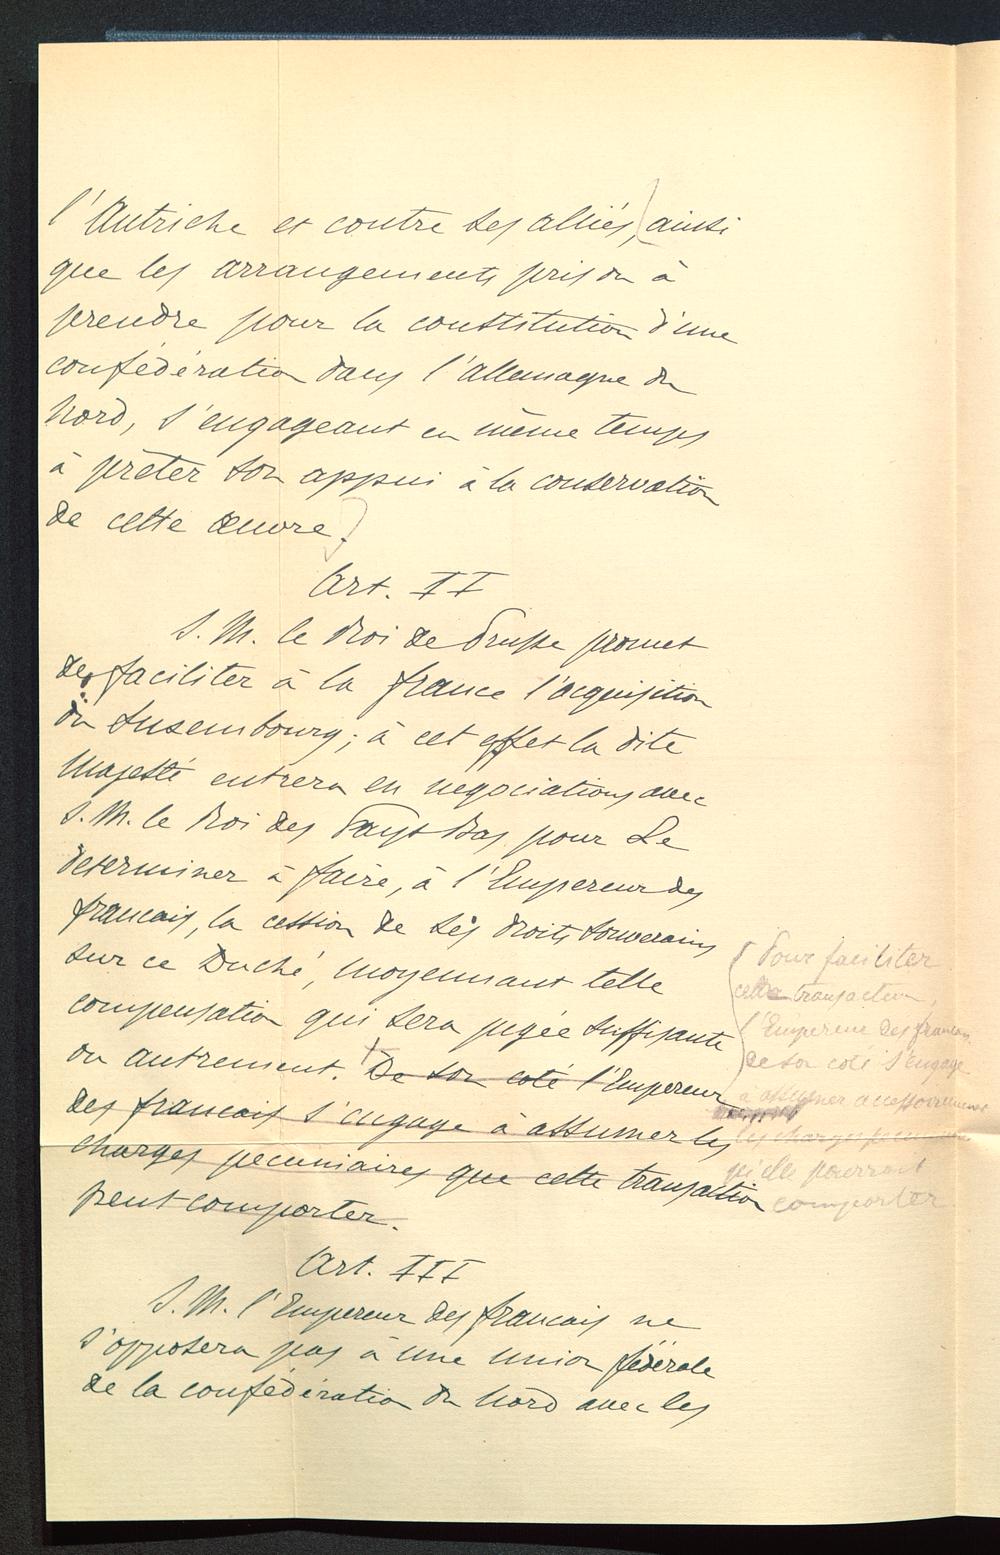 l'Autriche et contre ses alliés, (ainsi
que les arrangements pris ou à
prendre pour la constitution d'une
confédération dans l'Allemagne du
Nord, s'engageant en même temps
à prêter son appui à la conservation
de cette œuvre.)
Art. II
S. M. le Roi de Prusse promet
de faciliter à la France l'acquisition
du Luxembourg; à cet effet la dite
Majesté entrera en négociations avec
S. M. le Roi des Pays-Bas pour Le
determiner à faire, à l'Empereur des
francais, la cession de Ses droits souverains
sur ce Duché, moyennant telle
compensation qui sera jugée suffisante
ou autrement. De son coté l'Empereur
des francais s'engage à assumer les
charges pecuniaires que cette transaction
peut comporter.
(Pour faciliter
cette transaction,
l'Empereur des francais
de son coté s'engage
à assumer accessoirement
les charges pecuniaires
qu'elle pourrait
comporter
Art. III
S. M. l'Empereur des francais ne
s'opposera pas à une union fédérale
de la confédération du Nord avec les